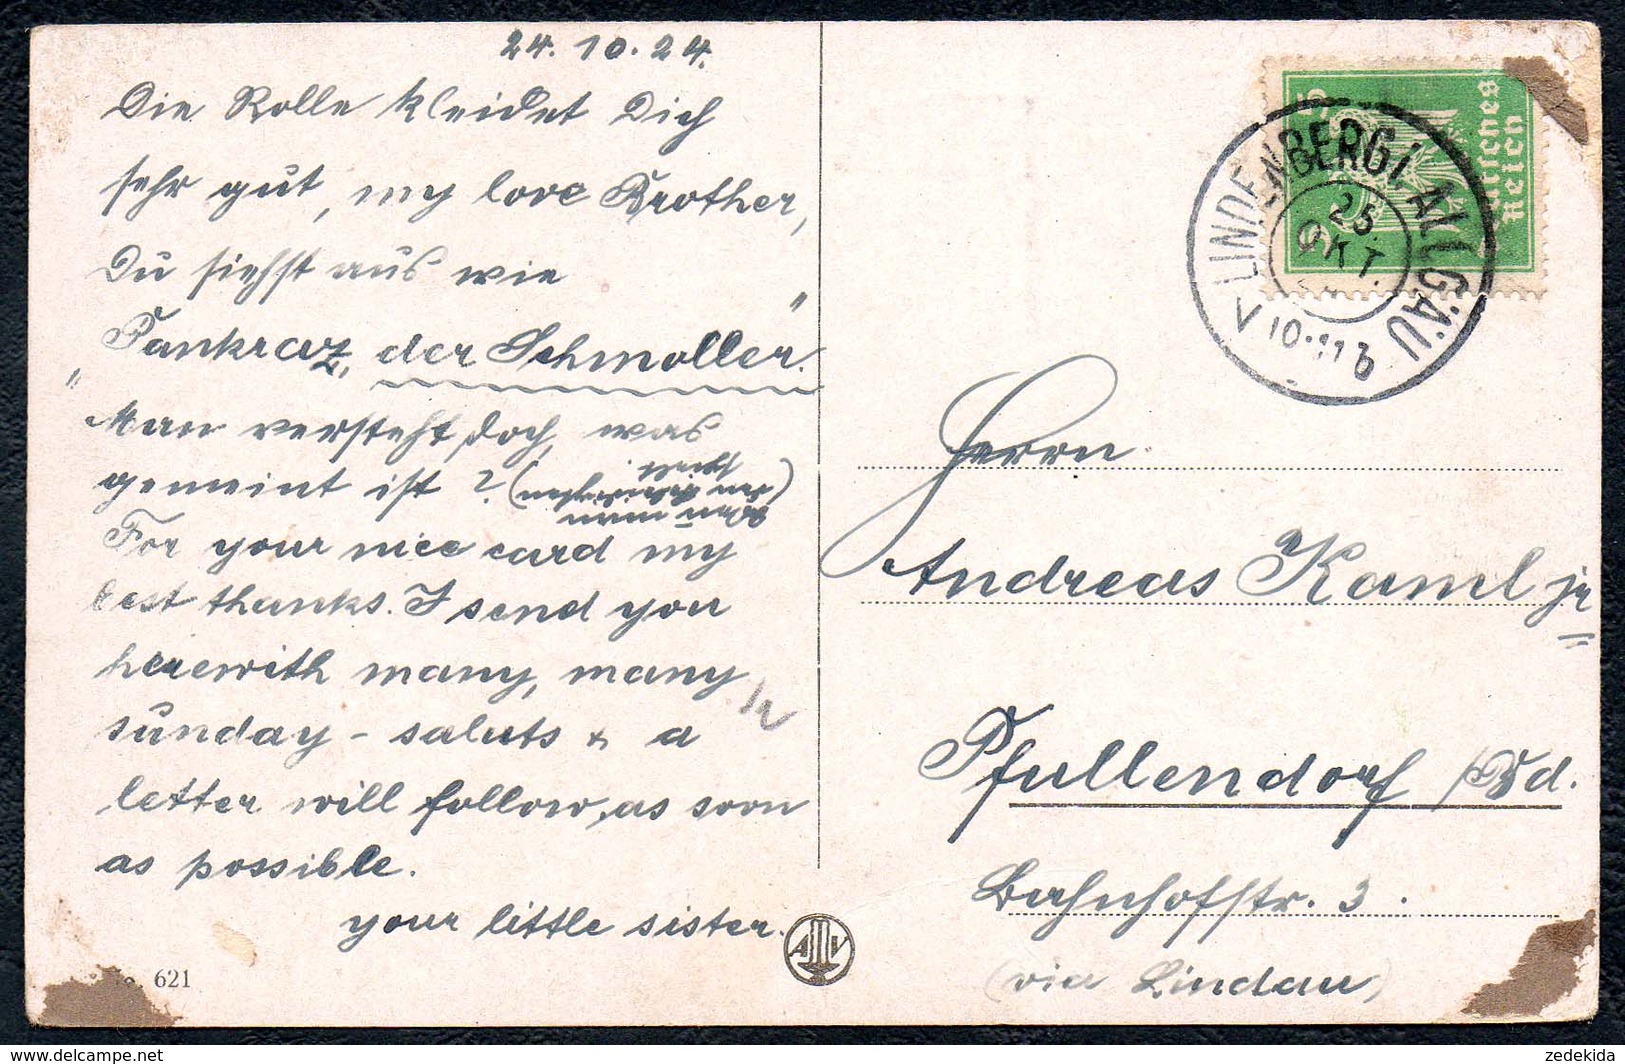 24.10.24.
Die Rolle kleidet Dich
sehr gut, my love Brother,
Du siehst aus wie
"Pankraz, der Schmoller."
Man versteht doch, was
gemeint ist?
(Wenn man
den
spielt.)
For your nice card my
best thanks. I send you
herewith many, many
sunday - saluts & a
letter will follow, as soon
as possible.
your little sister.
621
A V
Deutsches
Reich
5
LINDENBERG i. ALLGÄU
25.
OKT.
10-11
Herrn
Andreas Kamel jr
Pfullendorf /Bd.
Bahnhofstr. 3.
(via Lindau)
zedekida